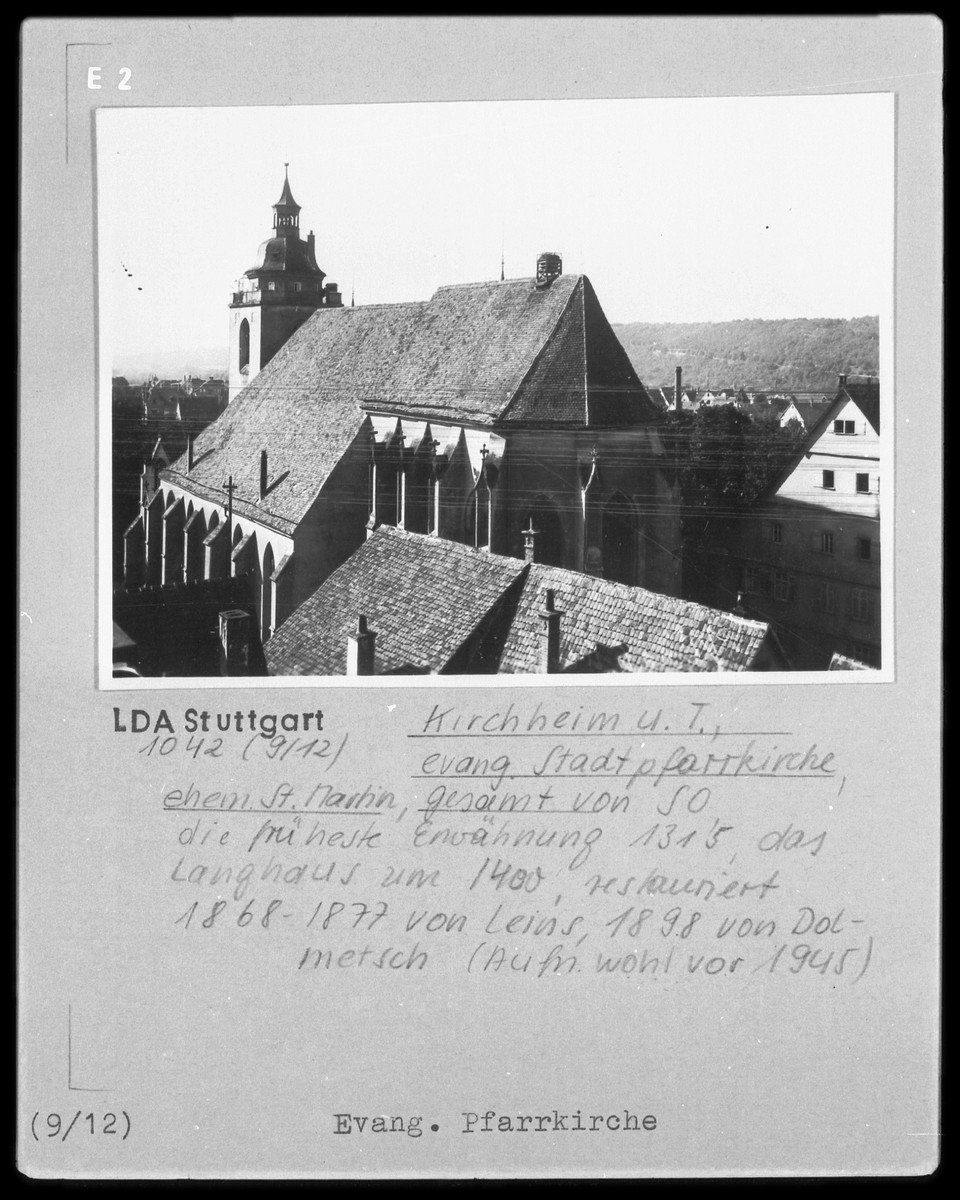 E 2
LDA Stuttgart
1042 (9/12)
Kirchheim u. T.,
evang. Stadtpfarrkirche,
ehem. St. Martin, gesamt von SO
die früheste Erwähnung 1315, das
Langhaus um 1400, restauriert
1868-1877 von Leins, 1898 von Dol-
metsch (Aufn. wohl vor 1945)
(9/12)
Evang. Pfarrkirche